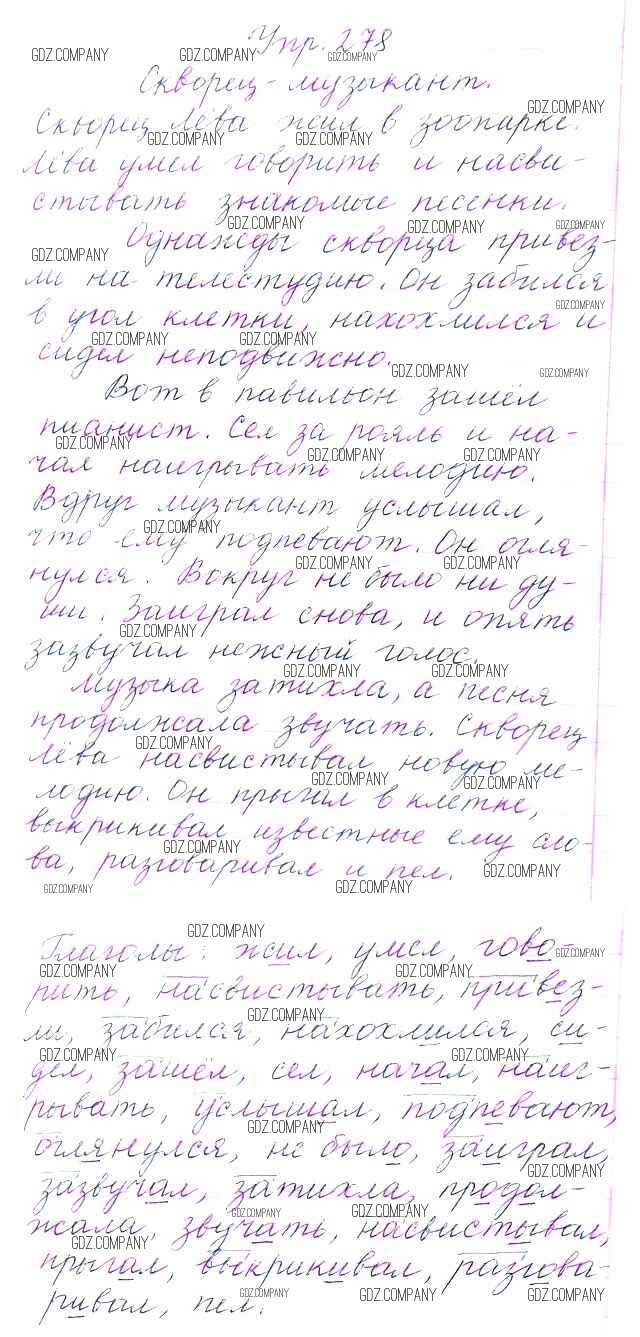 Упр. 278
Скворец-музыкант.
Скворец Лёва жил в зоопарке.
Лёва умел говорить и насви-
стывать знакомые песенки.
Однажды скворца привез-
ли на телестудию. Он забился
в угол клетки, нахохлился и
сидел неподвижно.
Вот в павильон зашёл
пианист. Сел за рояль и на-
чал наигрывать мелодию.
Вдруг музыкант услышал,
что ему подпевают. Он огля-
нулся. Вокруг не было ни ду-
ши. Заиграл снова, и опять
зазвучал нежный голос.
Музыка затихла, а песня
продолжала звучать. Скворец
Лёва насвистывал новую ме-
лодию. Он прыгал в клетке,
выкрикивал известные ему сло-
ва, разговаривал и пел.
Глаголы: жил, умел, гово-
рить, насвистывать, привез-
ли, забился, нахохлился, си-
дел, зашёл, сел, начал, наиг-
рывать, услышал, подпевают,
оглянулся, не было, заиграл,
зазвучал, затихла, продол-
жала, звучать, насвистывал,
прыгал, выкрикивал, разгова-
ривал, пел.
GDZ.COMPANY